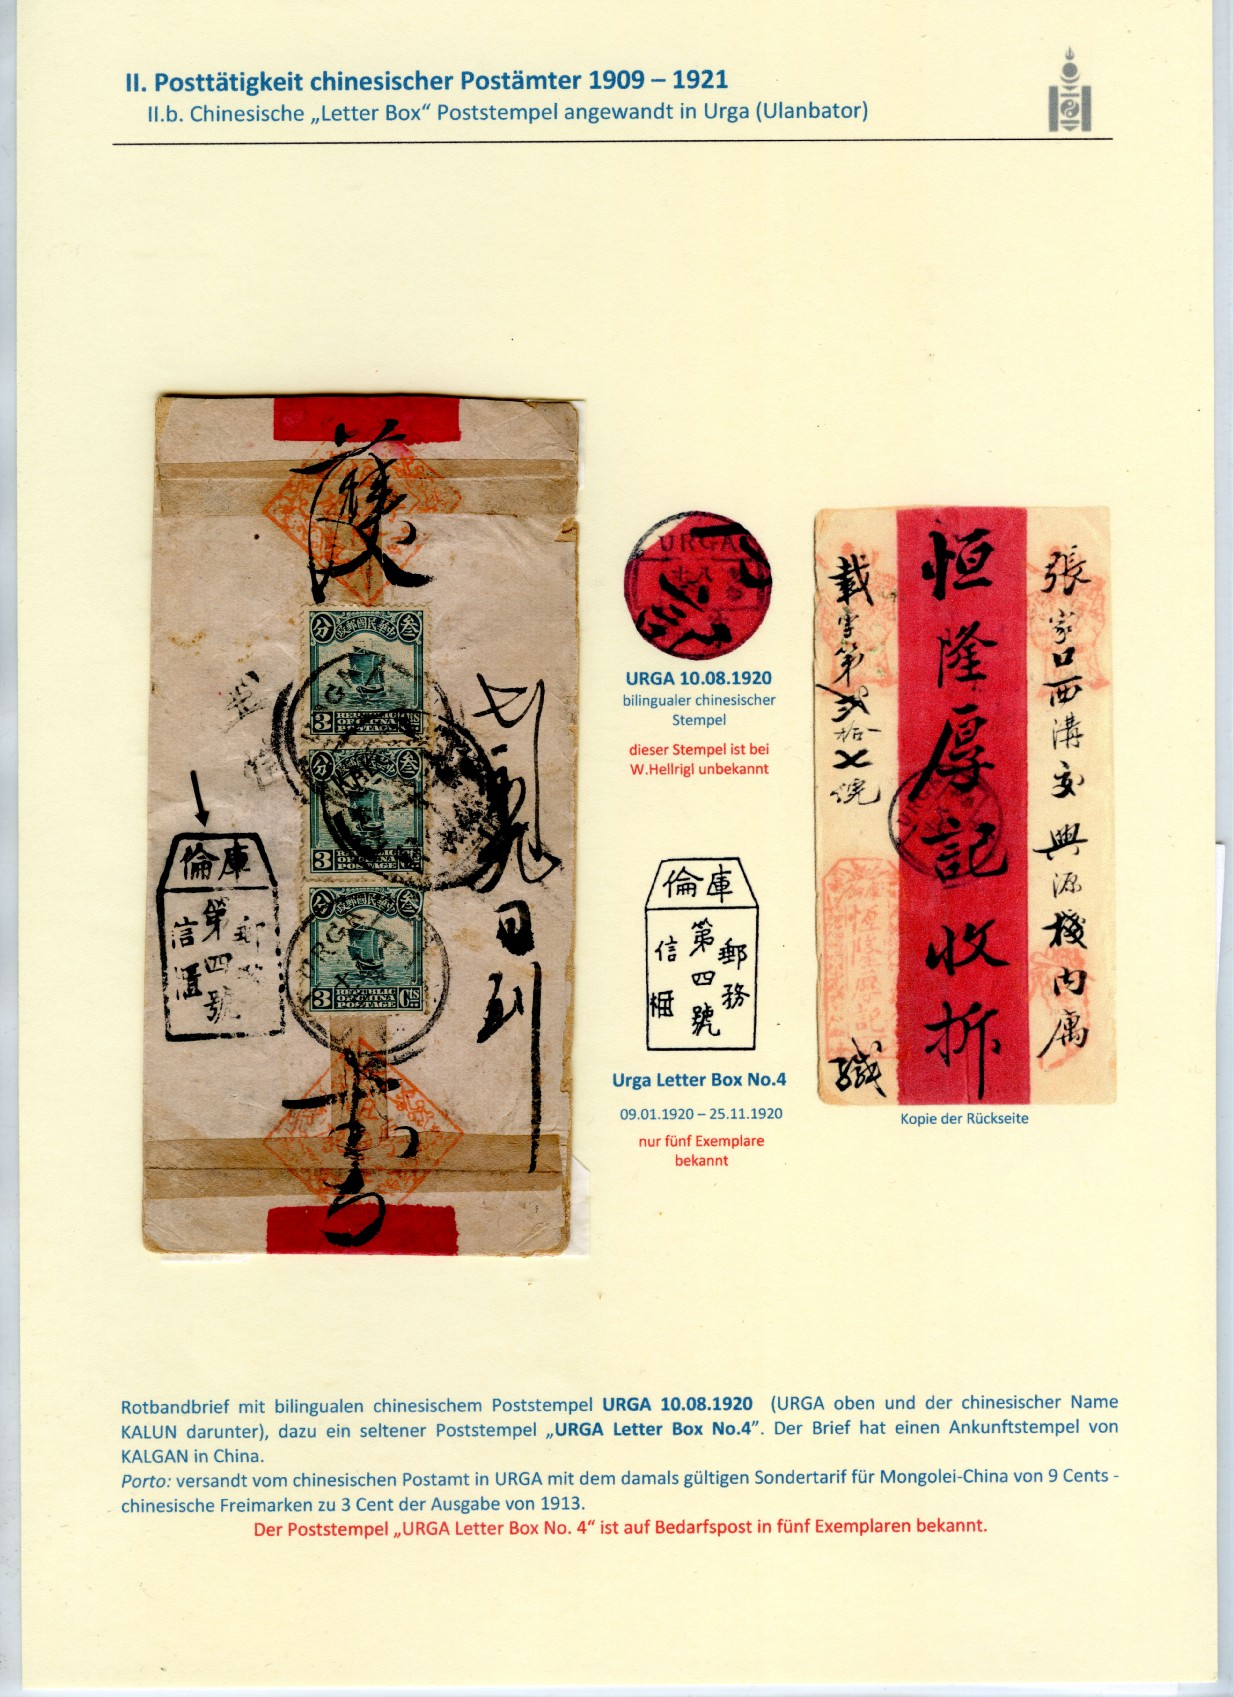 II. Posttätigkeit chinesischer Postämter 1909 – 1921
II.b. Chinesische „Letter Box“ Poststempel angewandt in Urga (Ulanbator)
護
分 叁
政郵國民華中
3 CTS
REPUBLIC
OF CHINA
POSTAGE
分 叁
3 CTS
REPUBLIC
OF CHINA
POSTAGE
分 叁
政郵國民華中
3 CTS
REPUBLIC
OF CHINA
POSTAGE
URGA
庫倫
郵務
第四號
信櫃
日到
URGA
URGA 10.08.1920
bilingualer chinesischer
Stempel
dieser Stempel ist bei
W.Hellrigl unbekannt
庫倫
郵務
第四號
信櫃
Urga Letter Box No.4
09.01.1920 – 25.11.1920
nur fünf Exemplare
bekannt
張家口西溝交興源棧內
恒隆厚記收拆
載字第貳拾七號
緘
Kopie der Rückseite
Rotbandbrief mit bilingualen chinesischem Poststempel URGA 10.08.1920 (URGA oben und der chinesischer Name
KALUN darunter), dazu ein seltener Poststempel „URGA Letter Box No.4”. Der Brief hat einen Ankunftstempel von
KALGAN in China.
Porto: versandt vom chinesischen Postamt in URGA mit dem damals gültigen Sondertarif für Mongolei-China von 9 Cents -
chinesische Freimarken zu 3 Cent der Ausgabe von 1913.
Der Poststempel „URGA Letter Box No. 4“ ist auf Bedarfspost in fünf Exemplaren bekannt.